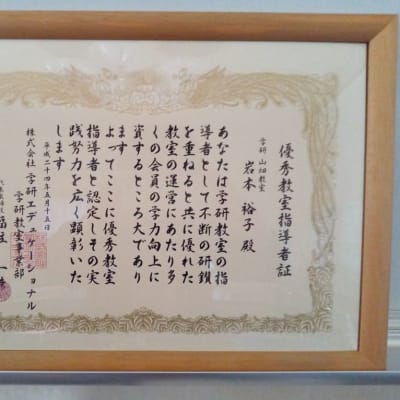 優秀教室指導者証
学研 山畑教室
岩本 裕子 殿
あなたは学研教室の指
導者として不断の研鎖
を重ねると共に優れた
教室の運営にあたり多
くの会員の学力向上に
資するところ大であり
ます
よってここに優秀教室
指導者と認定しその実
践努力を広く顕彰いた
します
平成二十四年五月十五日
株式会社 学研エデュケーショナル
学研教室事業部